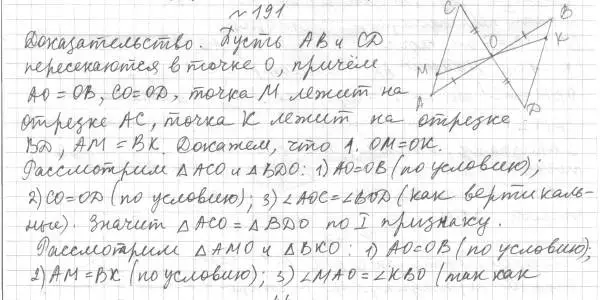 №191
C
B
O
K
M
A
D
Доказательство. Пусть AB и CD
пересекаются в точке O, причём
AO=OB, CO=OD, точка M лежит на
отрезке AC, точка K лежит на отрезке
BD, AM=BK. Докажем, что 1. OM=OK.
Рассмотрим △ACO и △BDO: 1) AO=OB (по условию);
2) CO=OD (по условию); 3) ∠AOC=∠BOD (как вертикаль-
ные). Значит △ACO=△BDO по I признаку.
Рассмотрим △AMO и △BKO: 1) AO=OB (по условию);
2) AM=BK (по условию); 3) ∠MAO=∠KBO (так как